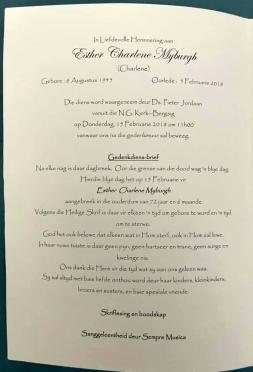 In Liefdevolle Herinnering aan
Esther Charlene Myburgh
(Charlene)
Gebore : 8 Augustus 1945 Oorlede : 9 Februarie 2018
Die diens word waargeneem deur Ds. Pieter Jordaan
vanuit die N.G. Kerk-Bergsig
op Donderdag, 15 Februarie 2018 om 11h00
vanwaar ons na die gedenkmuur sal beweeg.
Gedenkdiens-brief
Na elke nag is daar dagbreek. Oor die grense van die dood wag 'n blye dag.
Hierdie blye dag het op 9 Februarie vir
Esther Charlene Myburgh
aangebreek in die ouderdom van 72 jaar en 6 maande.
Volgens die Heilige Skrif is daar vir elkeen 'n tyd om gebore te word en 'n tyd
om te sterwe.
God het ook belowe dat elkeen wat in Hom sterf, ook in Hom sal lewe.
In haar nuwe tuiste is daar geen pyn, geen hartseer en trane, geen sorge en
kwelinge nie.
Ons dank die Here vir die tyd wat sy aan ons geleen was.
Sy sal altyd met baie liefde onthou word deur haar kinders, kleinkinders,
broers en susters, en baie spesiale vriende.
Skriflesing en boodskap
Sanggeleentheid deur Sempre Musica